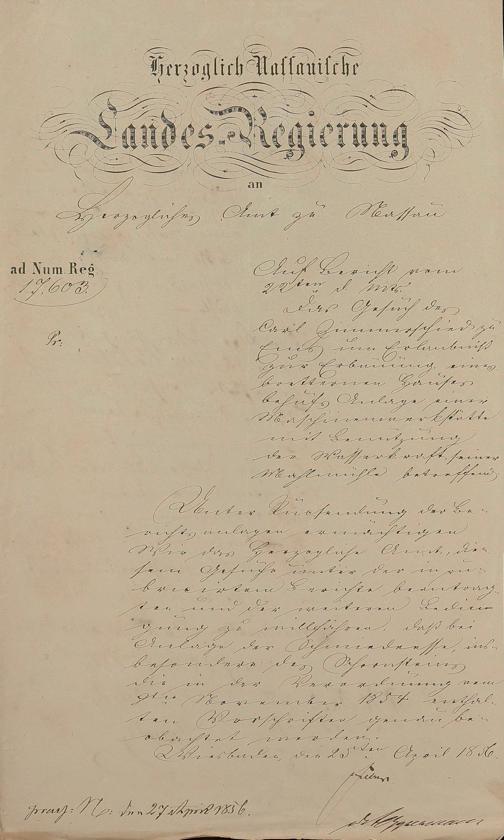 Herzoglich Nassauische
Landes-Regierung
an
Herzogliches Amt zu Nassau
ad Num Reg
17,603.
Pr:
Auf Bericht vom
22ten d Mts.
Das Gesuch des
Carl Zimmerschied zu
Ems um Erlaubniß
zur Erbauung eines
bretternen Hauses
behufs Anlage einer
Maschinenwerkstätte
mit Benutzung
der Wasserkraft seiner
Mahlmühle betreffend
Unter Rücksendung der Be-
richtsanlagen ermächtigen
Wir das Herzogliche Amt, die-
sem Gesuche unter der in ru-
bricirtem Berichte beantrag-
ten und der weiteren Bedin-
gung zu willfahren, daß bei
Anlage der Schmiedeesse, ins-
besondere des Schornsteins
die in der Verordnung vom
9ten November 1854 enthal-
ten Vorschriften genau be-
obachtet werden.
Wiesbaden, den 25ten April 1856.
praes: N: den 27 April 1856.